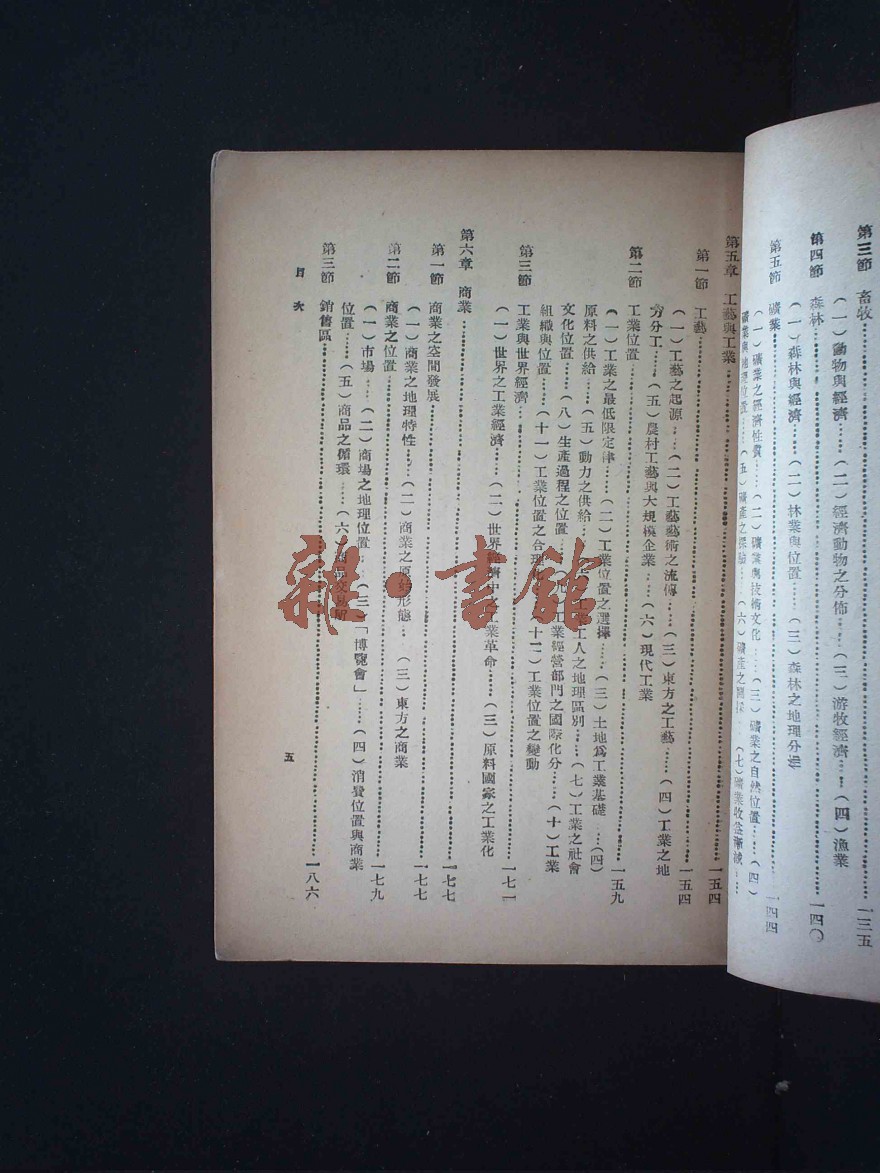 第三節 畜牧……一三五
(一)動物與經濟……(二)經濟動物之分佈……(三)游牧經濟……(四)漁業
第四節 森林……一四〇
(一)森林與經濟……(二)林業與位置……(三)森林之地理分佈
第五節 礦業……一四四
(一)礦業之經濟性質……(二)礦業與技術文化……(三)礦業之自然位置……(四)
礦業與地理位置……(五)礦產之……(六)礦產之……(七)礦業收益漸減……
第五章 工藝與工業……一五四
第一節 工藝……一五四
(一)工藝之起源……(二)工藝藝術之流傳……(三)東方之工藝……(四)工業之地
方分工……(五)農村工藝與大規模企業……(六)現代工業
第二節 工業位置……一五九
(一)工業之最低限定律……(二)工業位置之選擇……(三)土地爲工業基礎……(四)
原料之供給……(五)動力之供給……工業工人之地理區別……(七)工業之社會
文化位置……(八)生產過程之位置……工業經營部門之國際化分……(十)工業
組織與位置……(十一)工業位置之合理化……(十二)工業位置之變動
第三節 工業與世界經濟……一七一
(一)世界之工業經濟……(二)世界經濟中之工業革命……(三)原料國家之工業化
第六章 商業……一七七
第一節 商業之空間發展……一七七
(一)商業之地理特性……(二)商業之原始形態……(三)東方之商業
第二節 商業之位置……一七九
(一)市場……(二)商場之地理位置……(三)「博覽會」……(四)消費位置與商業
位置……(五)商品之循環……(六)商品交易所
第三節 銷售區……一八六
目次
五
雜·書館